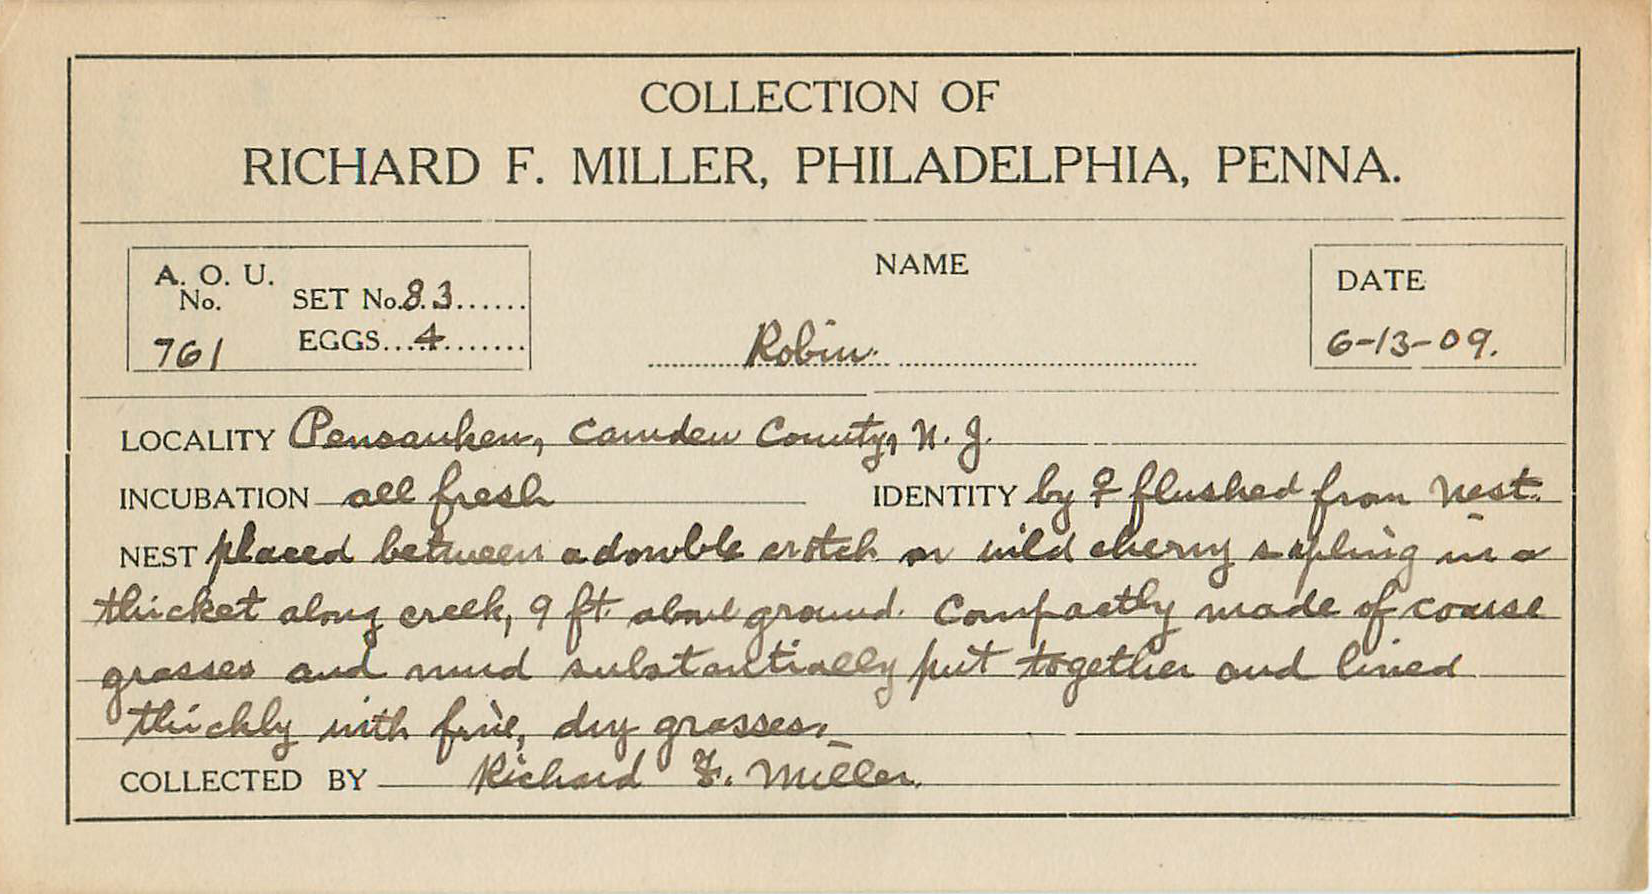 COLLECTION OF
RICHARD F. MILLER, PHILADELPHIA, PENNA.
A. O. U.
No.
761
SET No. 83
EGGS 4
NAME
Robin.
DATE
6-13-09.
LOCALITY Pensauken, Camden County, N. J.
INCUBATION all fresh IDENTITY by ♀ flushed from nest.
NEST placed between a double crotch in wild cherry sapling in a
thicket along creek, 9 ft. above ground. Compactly made of coarse
grasses and mud substantially put together and lined
thickly with fine, dry grasses.
COLLECTED BY Richard F. Miller.